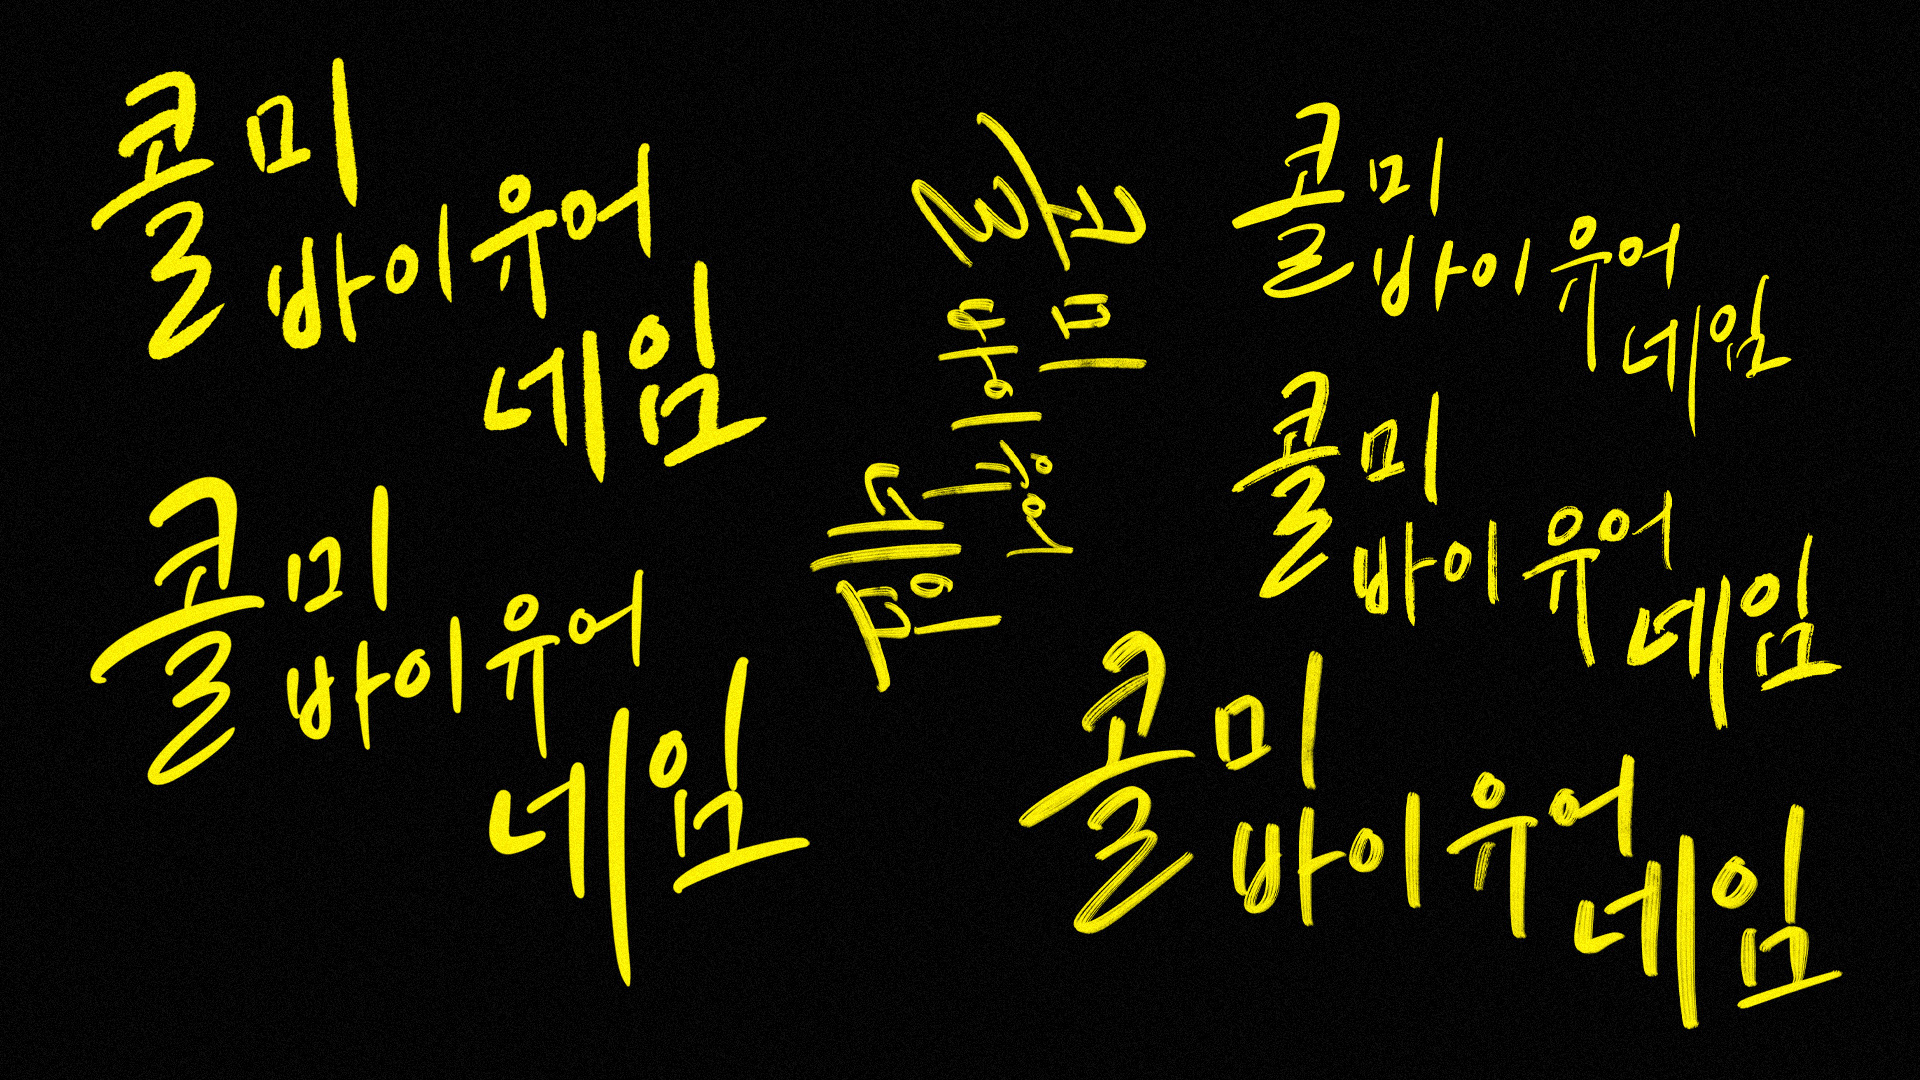 콜미
바이유어
네임
콜미
바이유어
네임
콜미
바이유어
네임
콜미
바이유어
네임
콜미
바이유어
네임
콜미
바이유어
네임